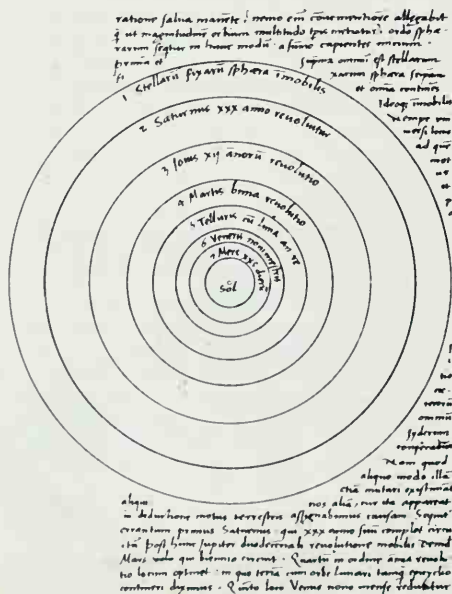 ratione salva manente: nemo em convenientiore allegabit
q̃ ut magnitudinē orbium multitudo tp̃is metiatur. ordo sphæ-
rarum sequitur in hunc modū: a summo capientes initium.
prima et suprema omniū est stellarum
fixarum sphæra seipsam
et omnia continens
Ideoq; imobilis
Nempe
ad quē
mot
ut
et
1 Stellarū fixarū sphæra imobilis
2 Saturnus xxx anno revolvitur
3 Jovis xij annorū revolutio
4 Martis bima revolutio
5 Telluris cū luna an re
6 Veneris nonimestris
7 Merc xxc dierū
Sol
tio
ne.
omniū
syderum
Nam quod
aliquo modo illā
etiā mutari existimāt
aliqui nos aliā, cur ita appareat
in deductione motus terrestris assignabimus causam. Sequit
errantium primus Saturnus: qui xxx anno suū complet circu
itū post hunc Jupiter duodecennali revolutione mobilis. Deinde
Mars qui biennio circuit. Quartū in ordine annua revolu
tio locum optinet: in quo terrā cum orbe lunari tanq̃ epicyclo
contineri diximus. Quinto loco Venus nono mense reducitur